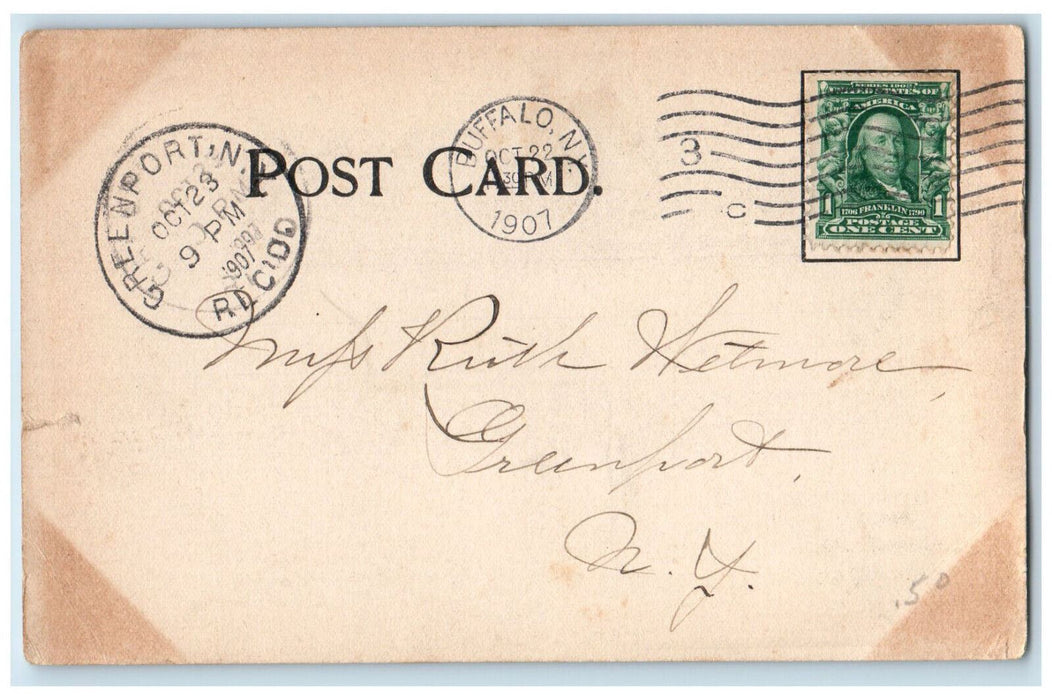 GREENPORT, N.Y.
OCT 23
9 PM
1907
REC'D
POST CARD.
BUFFALO, N.Y.
OCT 22
1907
3
C
SERIES 1902
UNITED STATES OF
AMERICA
1 1706 FRANKLIN 1790 1
POSTAGE
ONE CENT
Miss Ruth Wetmore,
Greenport,
N.Y.
.50